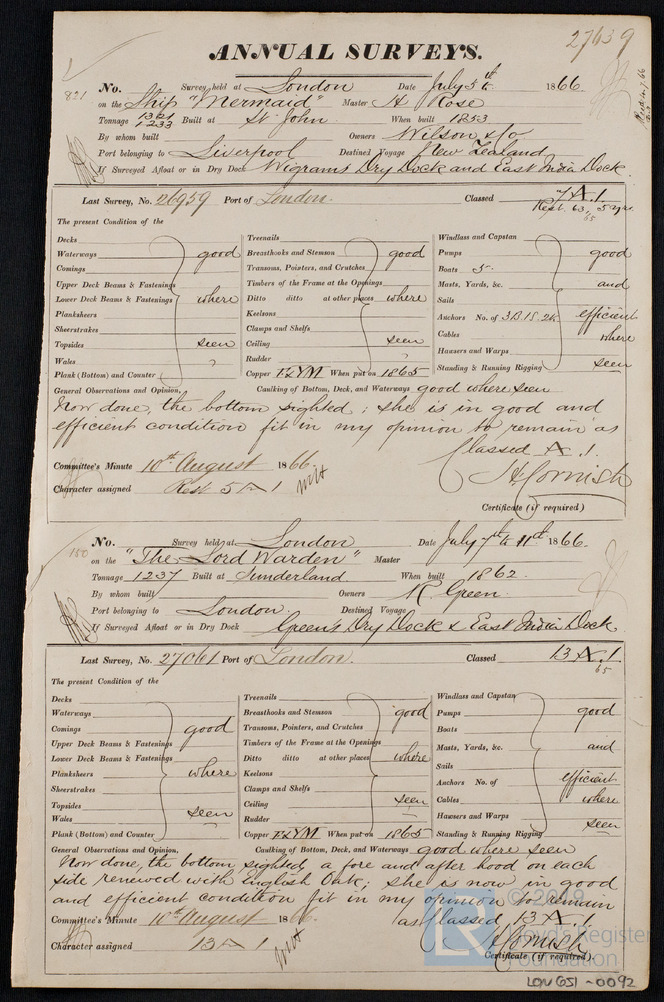 27639
ANNUAL SURVEYS.
821
No. Survey held at London Date July 5th 1866
on the Ship "Mermaid" Master H Rose
Tonnage 1321 1233 Built at St John When built 1853
By whom built Owners Wilson & Co
Port belonging to Liverpool Destined Voyage New Zealand
If Surveyed Afloat or in Dry Dock Wigrams Dry Dock and East India Dock.
Last Survey, No. 26959 Port of London. Classed 7 A.1
Rest. 63, 5 yrs.
65
The present Condition of the
Decks
Waterways
Comings
Upper Deck Beams & Fastenings
Lower Deck Beams & Fastenings
Planksheers
Sheerstrakes
Topsides
Wales
Plank (Bottom) and Counter
good
where
seen
Treenails
Breasthooks and Stemson
Transoms, Pointers, and Crutches
Timbers of the Frame at the Openings
Ditto ditto at other places
Keelsons
Clamps and Shelfs
Ceiling
Rudder
Copper & YM When put on 1865
good
where
seen
Windlass and Capstan
Pumps
Boats 5.
Masts, Yards, &c.
Sails
Anchors No. of 3B 1S 2K
Cables
Hawsers and Warps
Standing & Running Rigging
good
and
efficient
where
seen
General Observations and Opinion, Caulking of Bottom, Deck, and Waterways good where seen
Now done, the bottom sighted; she is in good and
efficient condition fit in my opinion to remain as
Classed A.1.
Committee's Minute 10th August 1866
H Cornish
Character assigned Rest 5 A 1
Certificate (if required)
150
No. Survey held at London Date July 7th to 11th 1866.
on the "The Lord Warden" Master
Tonnage 1237 Built at Sunderland When built 1862.
By whom built Owners R Green.
Port belonging to London. Destined Voyage
If Surveyed Afloat or in Dry Dock Green's Dry Dock & East India Dock
Last Survey, No. 27061 Port of London. Classed 13 A.1
65
The present Condition of the
Decks
Waterways
Comings
Upper Deck Beams & Fastenings
Lower Deck Beams & Fastenings
Planksheers
Sheerstrakes
Topsides
Wales
Plank (Bottom) and Counter
good
where
seen
Treenails
Breasthooks and Stemson
Transoms, Pointers, and Crutches
Timbers of the Frame at the Openings
Ditto ditto at other places
Keelsons
Clamps and Shelfs
Ceiling
Rudder
Copper & YM When put on 1865
good
where
seen
Windlass and Capstan
Pumps
Boats
Masts, Yards, &c.
Sails
Anchors No. of
Cables
Hawsers and Warps
Standing & Running Rigging
good
and
efficient
where
seen
General Observations and Opinion, Caulking of Bottom, Deck, and Waterways good where seen
Now done, the bottom sighted, a fore and after hood on each
side renewed with English Oak; she is now in good
and efficient condition fit in my opinion to remain
as Classed 13 A.1.
Committee's Minute 10th August 1866.
H Cornish
Character assigned 13 A 1
Certificate (if required).
© 2019
Lloyd's Register
Foundation
LON651-0092